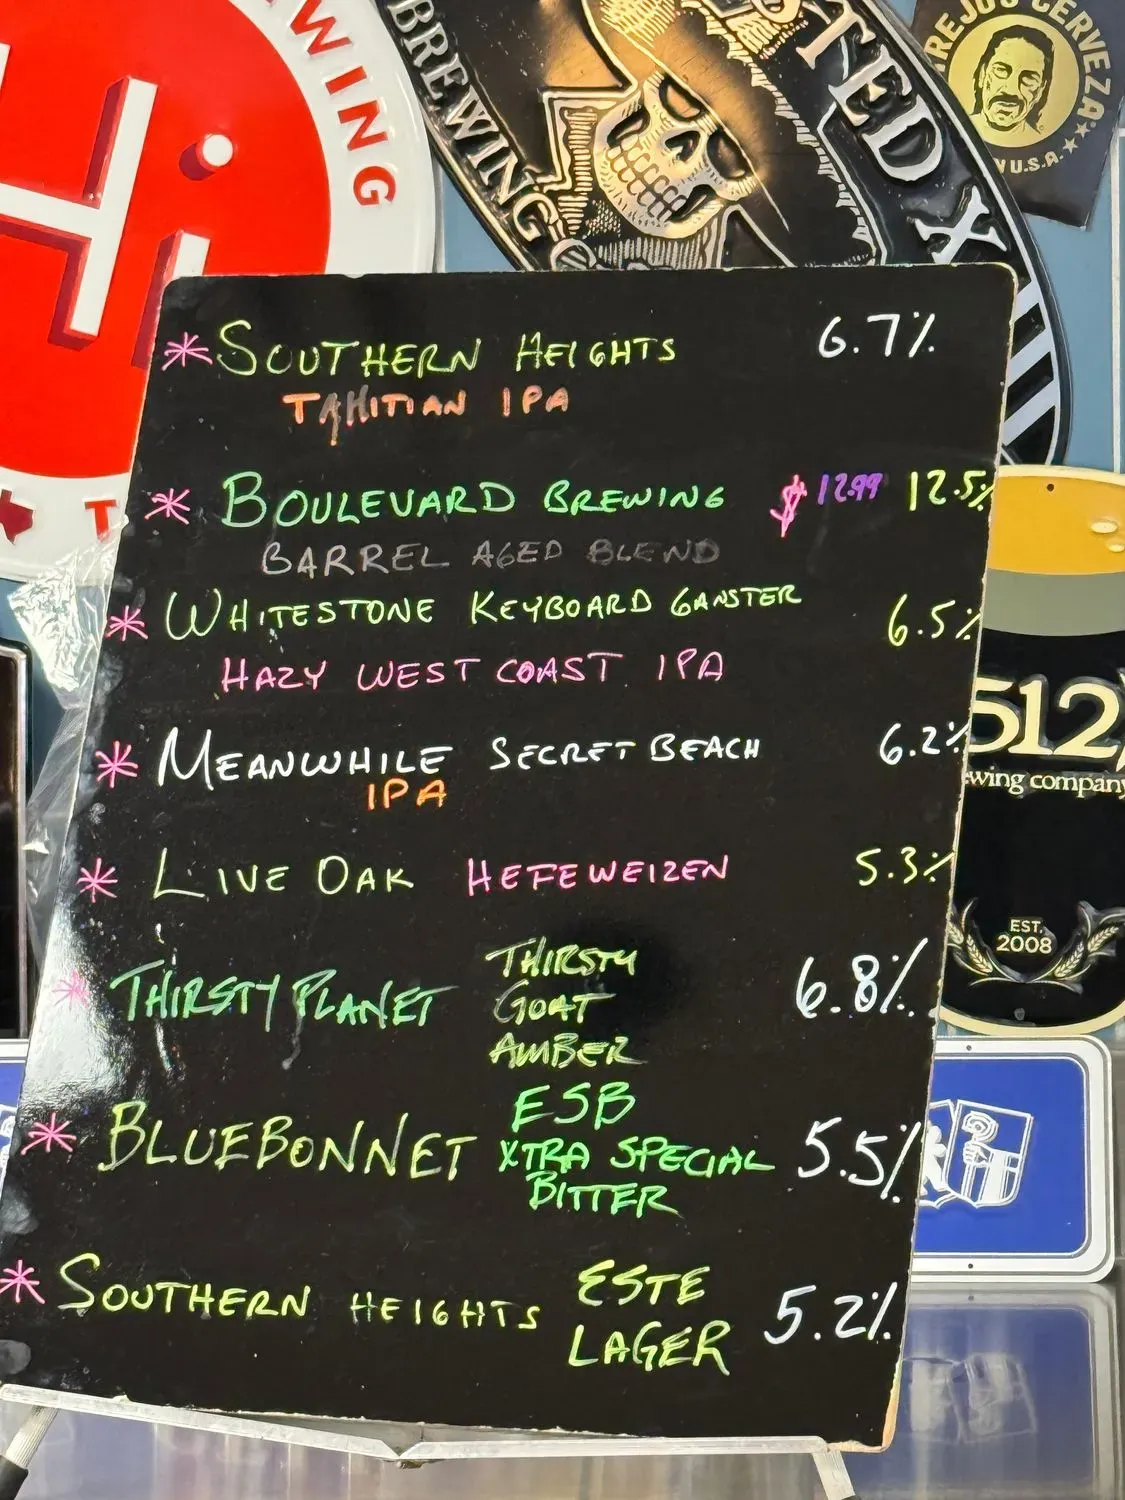 WING
Hi
T
BREWING
STED XIII
REJO'S CERVEZA
N U.S.A.
* SOUTHERN HEIGHTS 6.7%
TAHITIAN IPA
* BOULEVARD BREWING $12.99 12.5%
BARREL AGED BLEND
* WHITESTONE KEYBOARD GANSTER 6.5%
HAZY WEST COAST IPA
* MEANWHILE SECRET BEACH 6.2%
IPA
* LIVE OAK HEFEWEIZEN 5.3%
* THIRSTY PLANET THIRSTY 6.8%
GOAT
AMBER
* BLUEBONNET ESB 5.5%
XTRA SPECIAL
BITTER
* SOUTHERN HEIGHTS ESTE 5.2%
LAGER
512
wing company
EST.
2008